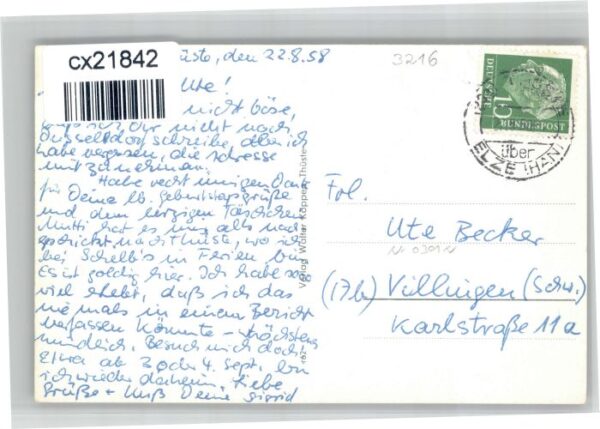 cx21842
üste, den 22.8.58
3216
Ute!
nicht böse,
Dir nicht nach
Düsseldorf schreibe, aber ich
habe vergessen, die Adresse
mitzunehmen.
Habe recht innigen Dank
für Deine lb. Geburtstagsgrüße
und dem herzigen Täschchen
Mutti hat es mir alles nach-
geschickt nach Thüste, wo ich
bei Schelb's in Ferien bin
Es ist goldig hier. Ich habe so
viel erlebt, daß ich das
niemals in einem Bericht
verfassen könnte - höchstens
mündlich. Besuch mich doch!
Etwa ab 3 oder 4. Sept. bin
ich wieder daheim. Liebe
Grüße + Kuß Deine Sigrid
Verlag Walter Köppen, Thüste
10
DEUTSCHE
BUNDESPOST
über
ELZE (HAN)
Frl.
Ute Becker
(17b) Villingen (Schw.)
Karlstraße 11a